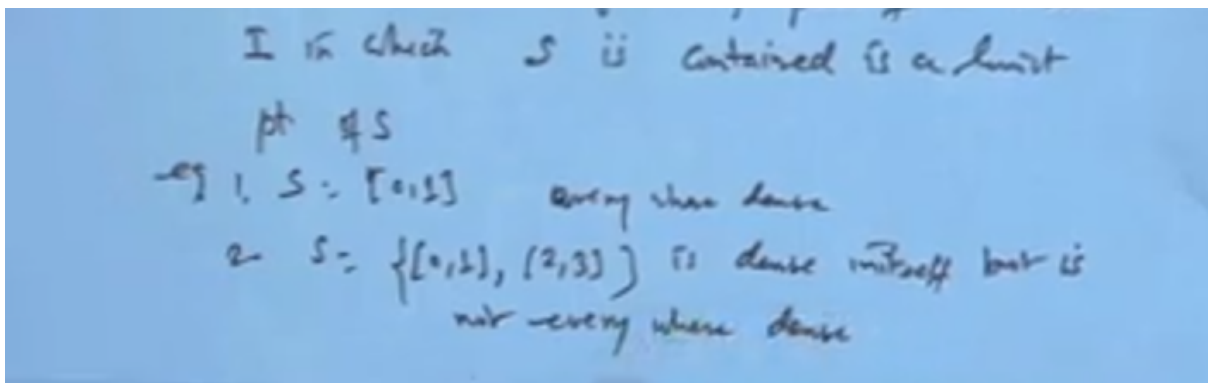 I in which S is contained is a limit
pt of S
eg 1. S = [0,1] every where dense
2 S = {[0,1], (2,3]} is dense in itself but is
not every where dense